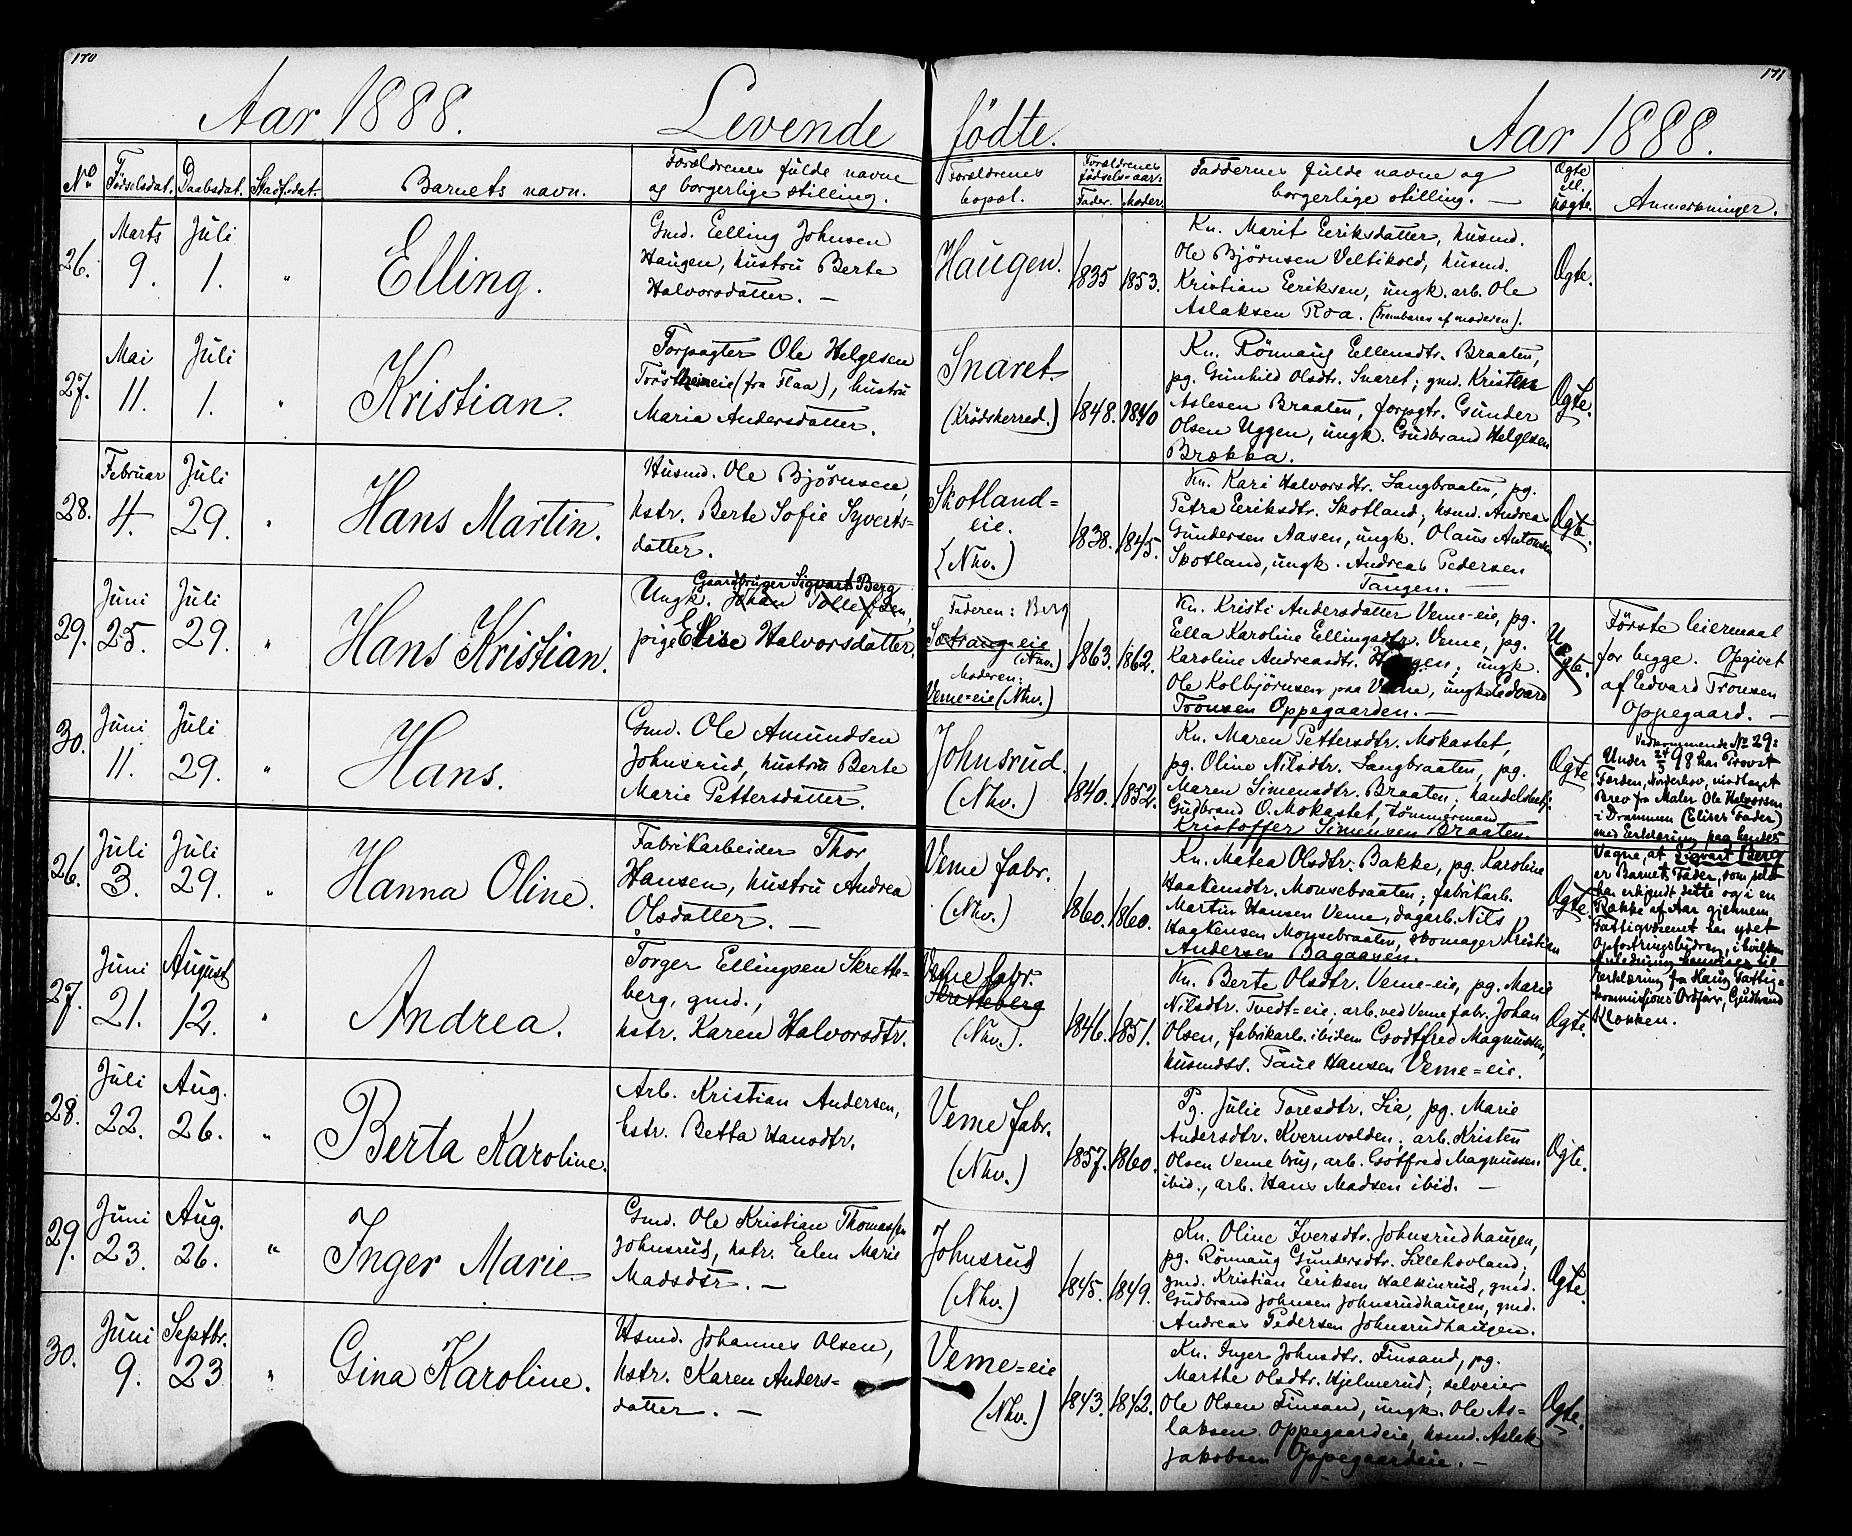 170
171
Aar 1888. Levende fødte. Aar 1888.
No. Fødselsdat. Daabsdat. Stadf.dat. Barnets navn. Forældrenes fulde navne og borgerlige stilling. Forældrenes bopæl. Forældrenes fødselsaar: Fader. Moder. Faddernes fulde navne og borgerlige stilling. — Ægte ell. uægte. Anmærkninger.
26. Marts 9. Juli 1. " Elling.
Gmd. Elling Johnsen
Haugen, hustru Berte
Halvorsdatter. —
Haugen. 1835 1853.
Kn. Marit Eeriksdatter, husmd.
Ole Bjørnsen Veltikold, husmd.
Kristian Eeriksen, ungk. arb. Ole
Aslaksen Roa. (Frembares af moderen).
Ægte.
27. Mai 11. Juli 1. " Kristian.
Forpagter Ole Helgesen
(fra Flaa), hustru
Maria Andersdatter.
Snaret.
(Krødsherred.)
1848. 1840
Kn. Rönnaug Ellensdtr. Braaten,
pg. Gunhild Olsdtr. Snaret; gmd. Kristen
Aslesen Braaten, forpgtr. Gunder
Olsen Uggen, ungk. Gudbrand Helgesen
Brække.
Ægte.
28. Februar 4. Juli 29. " Hans Martin.
Husmd. Ole Bjørnsen,
hstr. Berte Sofie Syverts=
datter.
Skotland=
eie.
(Nhv.)
1838. 1845.
Kn. Kari Halvorsdtr. Langbraaten, pg.
Petra Eeriksdtr. Skotland; hsmd. Andreas
Gundersen Aasen, ungk. Olaus Antonsen
Skotland, ungk. Andreas Pedersen
Tangen.
Ægte.
29. Juni 25. Juli 29. " Hans Kristian.
Gaardbruger Sigvart Berg
Ungk. Johan Tollefsen,
pige Elise Halvorsdatter.
Faderen: Berg
(Nhv.)
Moderen:
Veme=eie (Nhv.)
1863. 1862.
Kn. Kristi Andersdatter Veme=eie, pg.
Ella Karoline Ellingsdtr. Veme, pg.
Karoline Andreasdtr. ungk.
Ole Kolbjørnsen paa Veme, ungk. Edvard
Tronsen Oppegaarden. —
Uægte.
Første leiermaal
for begge. Opgivet
af Edvard Tronsen
Oppegaard. —
30. Juni 11. Juli 29. " Hans.
Gmd. Ole Amundsen
Johnsrud, hustru Berte
Marie Pettersdatter.
Johnsrud.
(Nhv.)
1840. 1852.
Kn. Maren Pettersdtr. Mokastet,
pg. Oline Nilsdtr. Langbraaten, pg.
Maren Simensdtr. Braaten; handelsbetj.
Gudbrand O. Mokastet, tömmermand
Kristoffer Simensen Braaten.
Ægte
Vedkommende No 29:
Under 24/3 98 har Provst
Norderhov, modtaget
Brev fra Maler Ole Halvorsen
i Drammen (Elises Fader)
med Erklæring paa hendes
Vegne, at Sigvart Berg
er Barnets Fader, som selv
har erkjendt dette og i en
Række af Aar gjennem
Fattigvæsenet har ydet
Opfostringsbidrag, i hvilken
Anledning henvises til
Erklæring fra Haug Fattig=
kommisions Ordfører, Gudbrand
Klokken.
26. Juli 3. Juli 29. " Hanna Oline.
Fabrikarbeider Thor
Hansen, hustru Andrea
Olsdatter. —
Veme fabr.
(Nhv.)
1860. 1860.
Kn. Matea Olsdtr. Bakke, pg. Karoline
Haakensdtr. Monsebraaten; fabrikarb.
Martin Hansen Veme, dagarb. Nils
Haakensen Monsebraaten, skomager Kristian
Andersen Bagaasen.
Ægte.
27. Juni 21. August 12. " Andrea.
Torger Ellingsen Skretts=
berg, gmd.,
hstr. Karen Halvorsdtr.
Veme fabr.
Skrettsberg
(Nhv.).
1846. 1851.
Kn. Berte Olsdtr. Veme=eie, pg. Marie
Nilsdtr. Tvedt=eie; arb. ved Veme fabr. Johan
Olsen, fabrikarb. ibidem Godtfred Magnussen,
husmdss. Paul Hansen Veme=eie.
Ægte.
28. Juli 22. Aug. 26. " Berta Karoline.
Arb. Kristian Andersen,
hstr. Betta Hansdtr.
Veme fabr.
(Nhv.)
1857. 1860.
Pg. Julie Toresdtr. Lia, pg. Marie
Andersdtr. Kvernvolden; arb. Kristen
Olsen Veme brug, arb. Gotfred Magnussen
ibid., arb. Hans Madsen ibid. —
Ægte.
29. Juni 23. Aug. 26. " Inger Marie
Gmd. Ole Kristian Thomassen
Johnsrud, hstr. Eelen Marie
Madsdtr. —
Johnsrud
(Nhv.)
1845. 1849.
Kn. Oline Iversdtr. Johnsrudhaugen,
pg. Rønnaug Gundersdtr. Lillehovland;
gmd. Kristian Eeriksen Halkinrud, gmd.
Gudbrand Johnsen Johnsrudhaugen, gmd.
Andreas Pedersen Johnsrudhaugen.
Ægte.
30. Juni 9. Septbr. 23 " Gina Karoline.
Hsmd. Johannes Olsen,
hstr. Karen Anders=
datter. —
Veme=eie
(Nhv.)
1843. 1842.
Kn. Inger Johnsdtr. Finsand, pg.
Marthe Olsdtr. Hjelmerud; selveier
Ole Olsen Finsand, ungk. Ole As=
laksen Oppegaardeie, hsmd. Aslak
Jakobsen Oppegaardeie. —
Ægte.